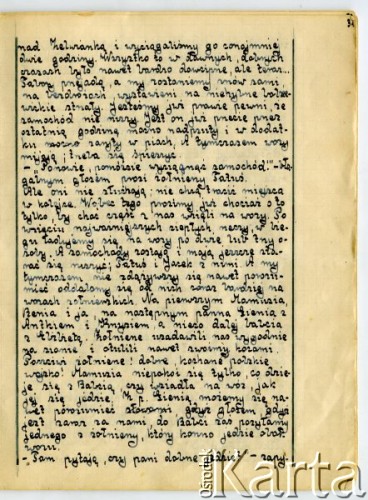 34
nad Zelwianką i wyciągaliśmy go conajmniej
dwie godziny. Wszystko to w dawnych, dobrych
czasach było nawet bardzo dowcipne, ale teraz...
Tatowie przejadą, a my zostaniemy znów sami
na bezdrożach, wystawieni na niemylne bolsze-
wickie strzały. Jesteśmy już prawie pewni, że
samochód nie ruszy. Jest on już przecie przez
ostatnią godzinę mocno nadpsuty i w dodat-
ku mocno zaryty w piach. A tymczasem wozy
mijają i trzeba się śpieszyć.
- "Panowie, pomóżcie wyciągnąć samochód!" - bła-
galnym głosem prosi żołnierzy Tatuś.
Ale oni nie słuchają: nie chcą tracić miejsca
w kolejce. Wobec tego prosimy już chociaż o to
tylko, by choć część z nas wzięli na wozy. Po
wzięciu najważniejszych ciepłych rzeczy, w bie-
gu ładujemy się na wozy po dwie lub trzy o-
soby. A samochody zostają i mają jeszcze sta-
rać się ruszyć; Tatuś i Jacek z nimi. A my
tymczasem nie zdążywszy się nawet porozu-
mieć oddalamy się od nich coraz bardziej na
wozach żołnierskich. Na pierwszym Mamusia,
Benia i ja, na następnym panna Zienia z
Antkiem i Krzysiem, a nieco dalej Babcia
z Elżbietą. Żołnierze usadowili nas wygodnie
na sianie i otulili nawet swoimi kocami.
Poczciwi żołnierze! dobre, kochane polskie
wojsko! Mamusia niepokoi się tylko, co dzie-
je się z Babcią, czy wsiadła na wóz, jak
jej się jedzie. Z p. Zienią możemy się na-
wet porozumieć słowami, gdyż głosem, gdyż
jest zaraz za nami, do Babci zaś posyłamy
jednego z żołnierzy, który konno jedzie obok
wozu.
- Pan pytają, czy pani dobrze Babci? - zapy-
Ośrodek
Karta